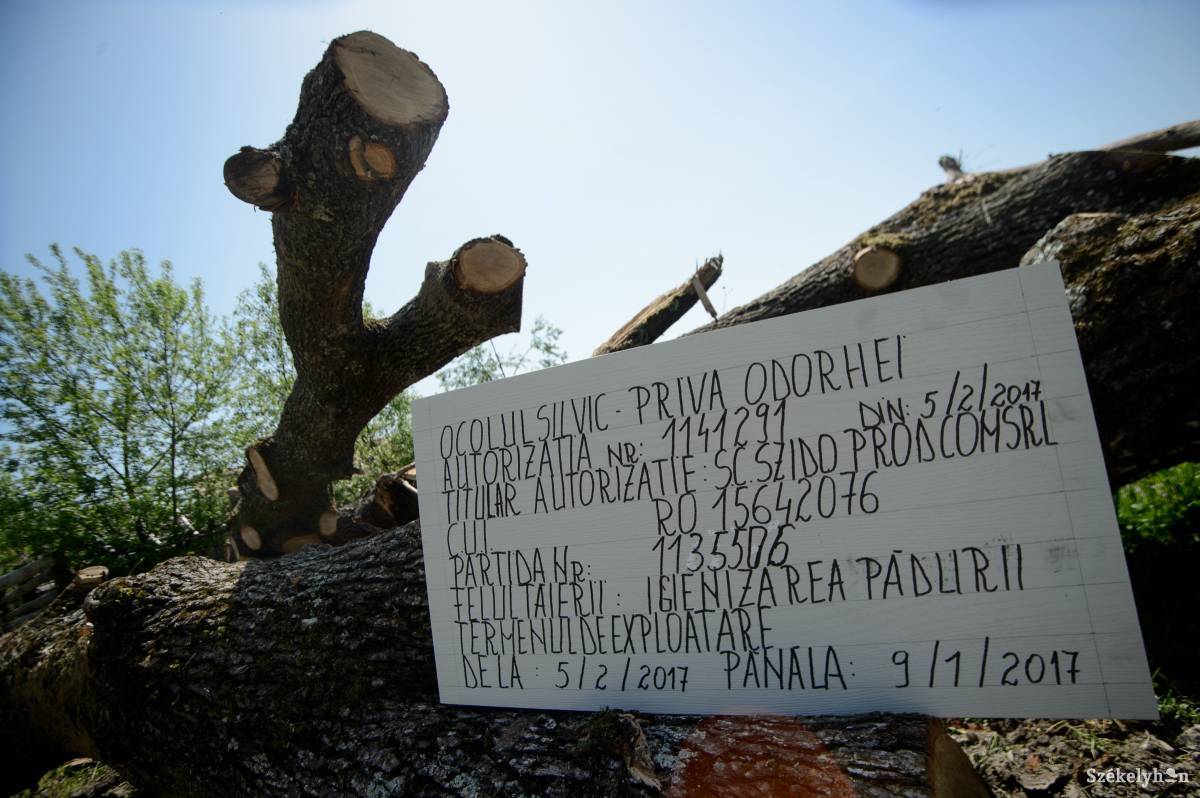 OCOLUL SILVIC - PRIVA ODORHEI
AUTORIZATIA NR: 1141291 DIN: 5/2/2017
TITULAR AUTORIZATIE: SC.SZIDO PRODCOMSRL
CUI RO 15642076
PARTIDA Nr: 1135506
FELUL TAIERII: IGIENIZAREA PĂDURII
TERMENUL DE EXPLOATARE
DE LA: 5/2/2017 PĂNĂLA: 9/1/2017
Székelyhon